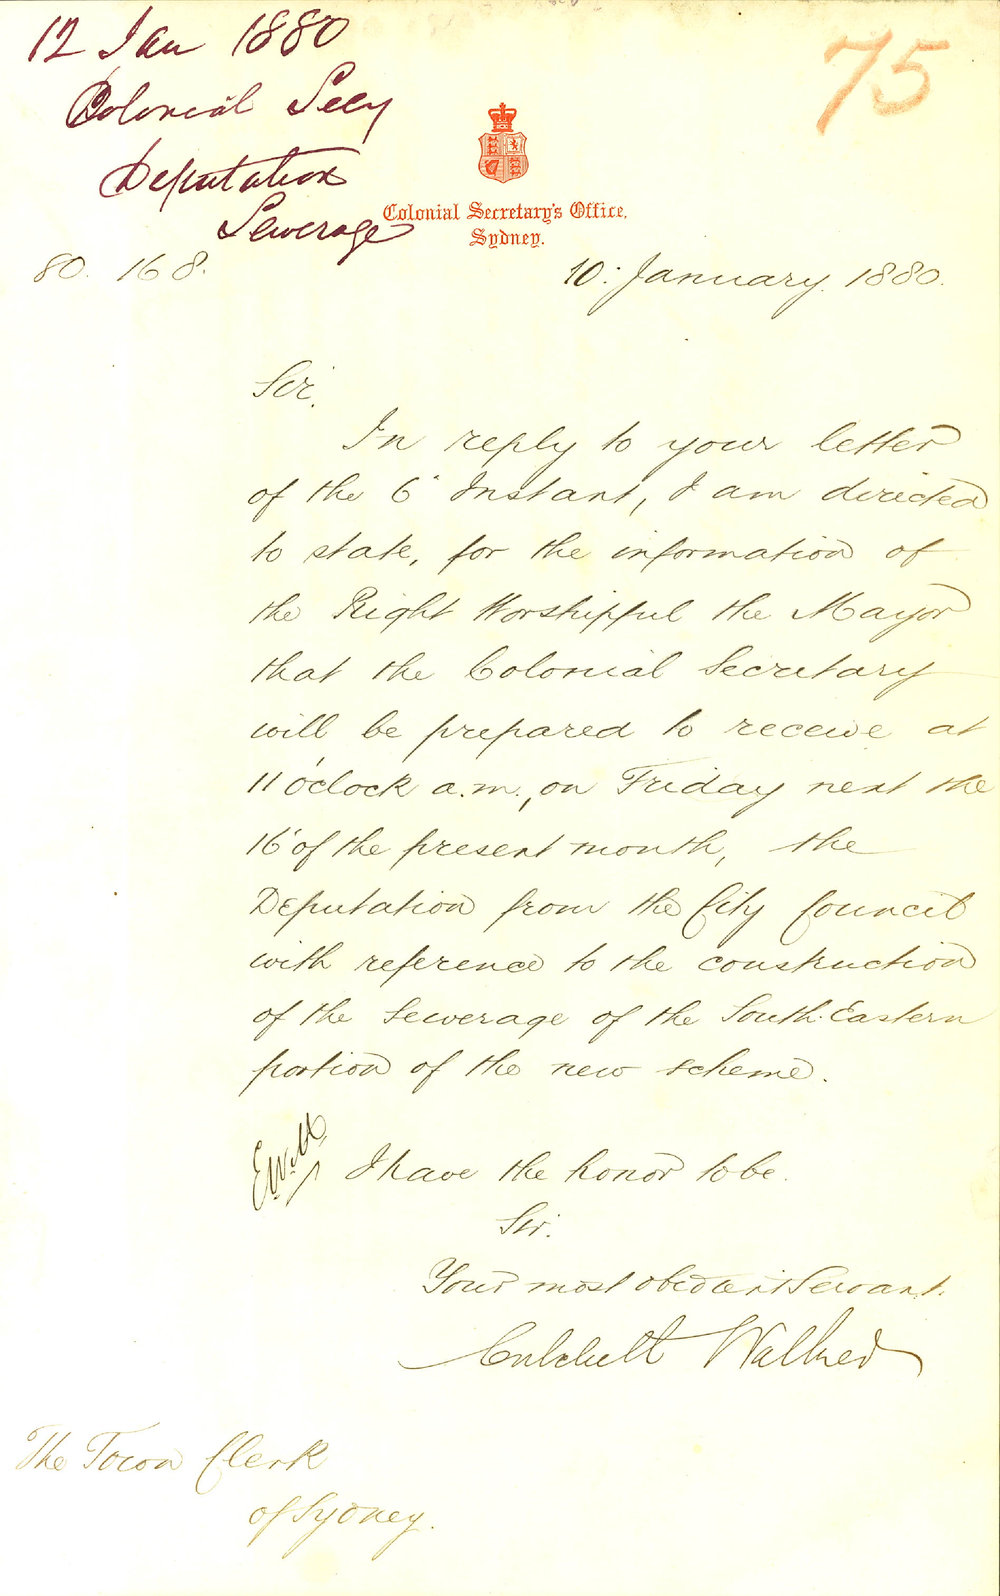 12 Jan 1880
Colonial Secy
Deputation
Sewerage
75
Colonial Secretary's Office,
Sydney.
80. 168.
10. January. 1880.
Sir.
In reply to your letter
of the 6" Instant, I am directed
to state, for the information of
the Right Worshipful the Mayor
that the Colonial Secretary
will be prepared to receive at
11 o'clock a.m., on Friday next the
16' of the present month, the
Deputation from the City Council
with reference to the construction
of the Sewerage of the South-Eastern
portion of the new scheme.
I have the honor to be.
Sir.
Your most obedient Servant.
Critchett Walker
The Town Clerk
of Sydney.